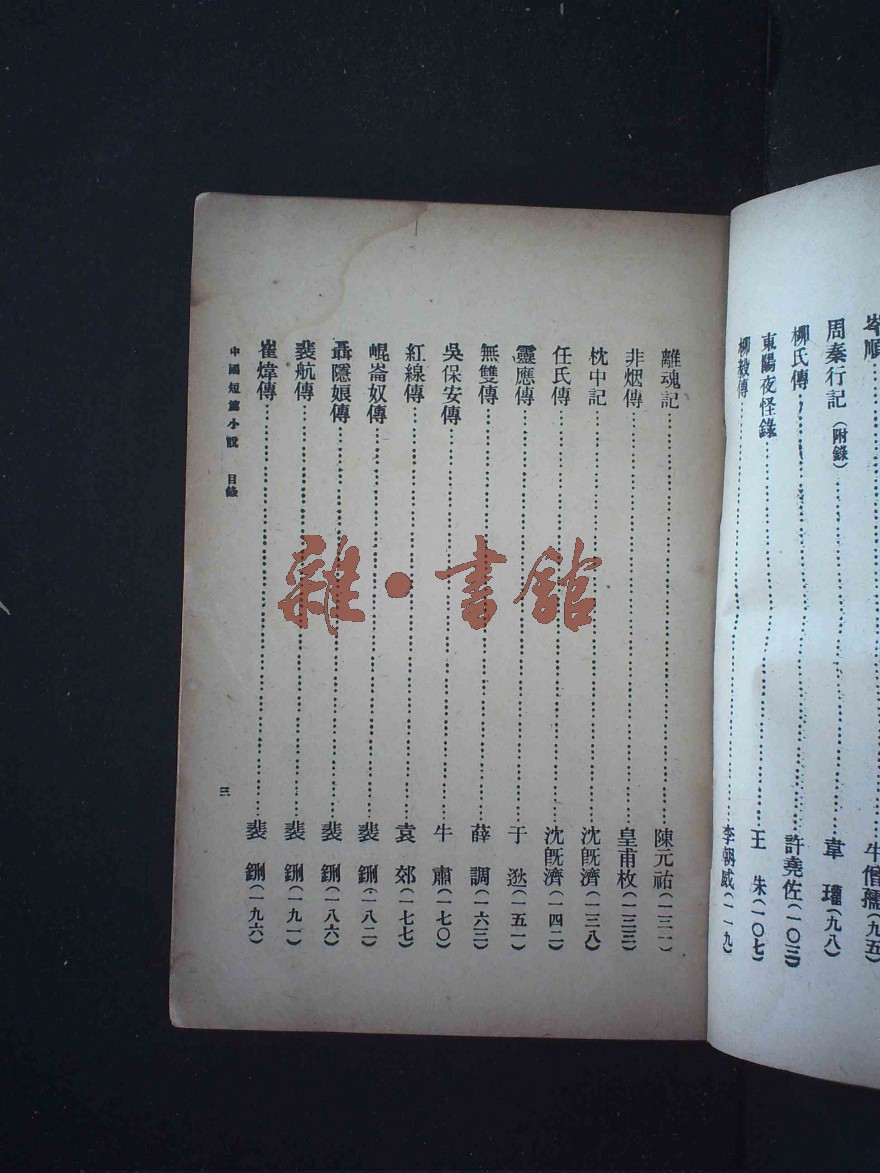 岑順⋯⋯牛僧孺(九五)
周秦行記(附錄)⋯⋯韋 瓘(九八)
柳氏傳⋯⋯許堯佐(一〇三)
東陽夜怪錄⋯⋯王 朱(一〇七)
柳毅傳⋯⋯李朝威(一一九)
離魂記⋯⋯陳元祐(一三一)
非烟傳⋯⋯皇甫枚(一三三)
枕中記⋯⋯沈旣濟(一三八)
任氏傳⋯⋯沈旣濟(一四二)
靈應傳⋯⋯于 逖(一五一)
無雙傳⋯⋯薛 調(一六三)
吳保安傳⋯⋯牛 肅(一七〇)
紅線傳⋯⋯袁 郊(一七七)
崐崙奴傳⋯⋯裴 鉶(一八二)
聶隱娘傳⋯⋯裴 鉶(一八六)
裴航傳⋯⋯裴 鉶(一九一)
崔煒傳⋯⋯裴 鉶(一九六)
中國短篇小說 目錄
三
雜·書館